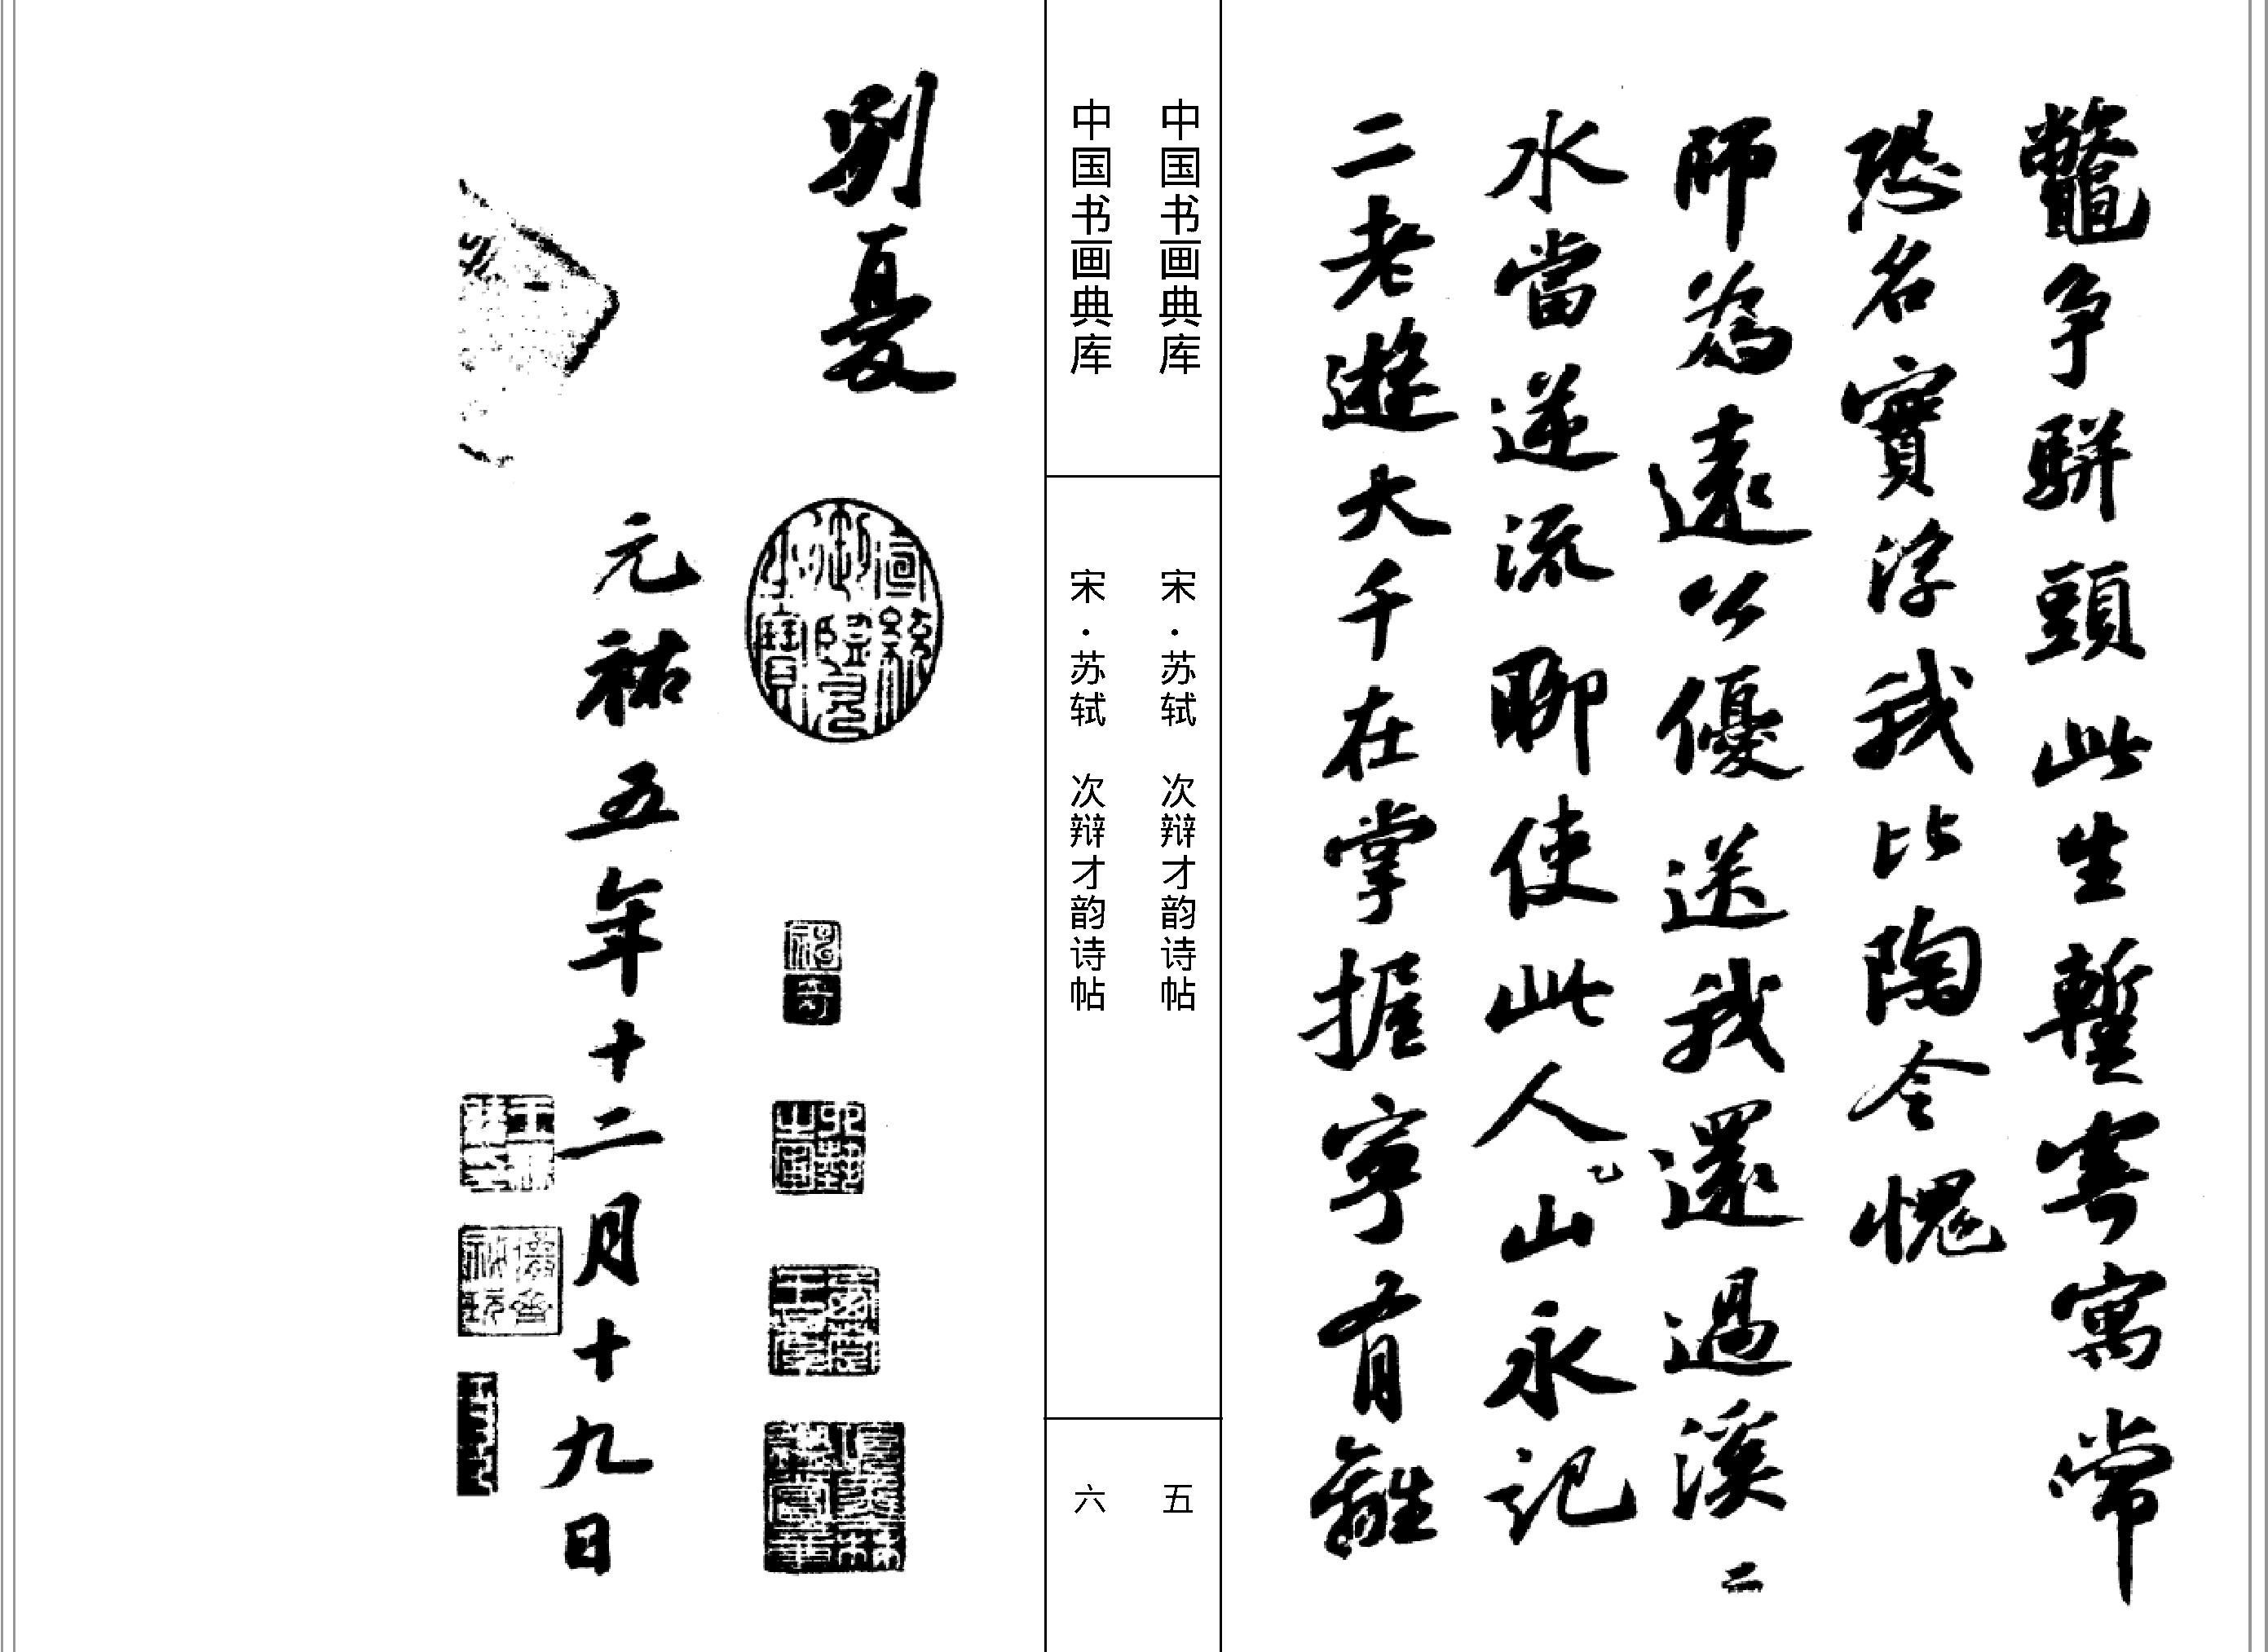 鼈争駢頭此生暫寄寓常
恐名實浮我比陶令愧
師為遠公優送我還過溪〻
水當逆流聊使此人山永記
二老遊大千在掌握寧有離
中国书画典库
宋·苏轼 次辩才韵诗帖
五
中国书画典库
宋·苏轼 次辩才韵诗帖
六
別憂
宣統御覽之寶
元祐五年十二月十九日